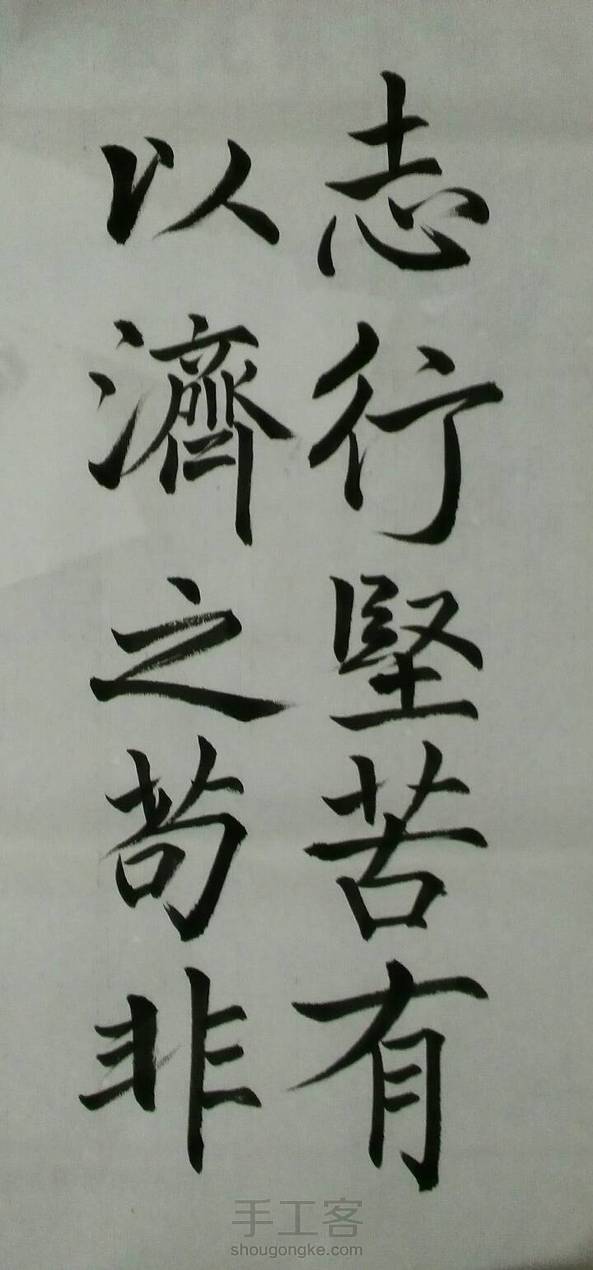 志行堅苦有
以濟之苟非
手工客
shougongke.com